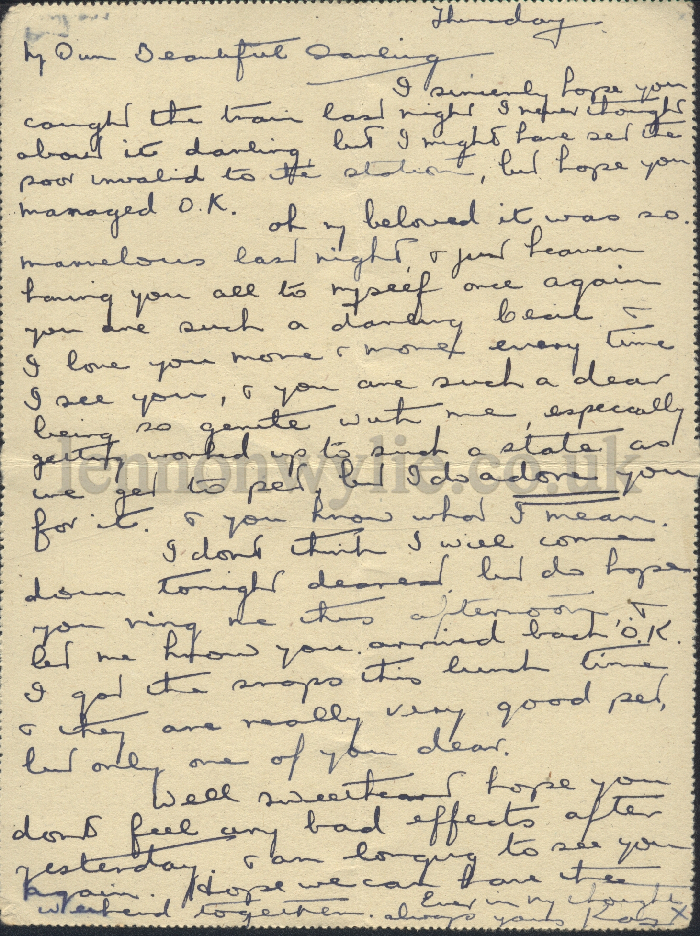 Thursday
My Own Beautiful Darling
I sincerely hope you
caught the train last night I never thought
about it darling but I might have sed the
poor invalid to the station, but hope you
managed O.K.
oh my beloved it was so
marvelous last night, & just heaven
having you all to myself once again
you are such a darling &
I love you more & more every time
I see you, & you are such a dear
being so gentle with me, especially
getting worked up to such a state as
we get to pet, but I do adore you
for it. & you know what I mean.
I dont think I will come
down tonight dearest, but do hope
you ring me this afternoon &
let me know you arrived back O.K.
I got the snaps this lunch time
& they are really very good pet,
but only one of you dear.
Well sweetheart hope you
dont feel any bad effects after
yesterday. & am longing to see you
again. Hope we can have the
weekend together. Ever in my thoughts
always yours X
lennonwylie.co.uk